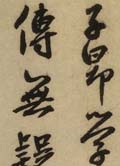 子昂學
傳無誤